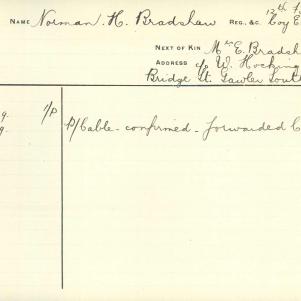 NAME Norman. H. Bradshaw REG. &C. 12th
Coy E
NEXT OF KIN Mrs E. Bradsh
ADDRESS c/o W. Hocking
Bridge St. Gawler Sout
9. 1/P
9. P/Cable - confirmed - forwarded C